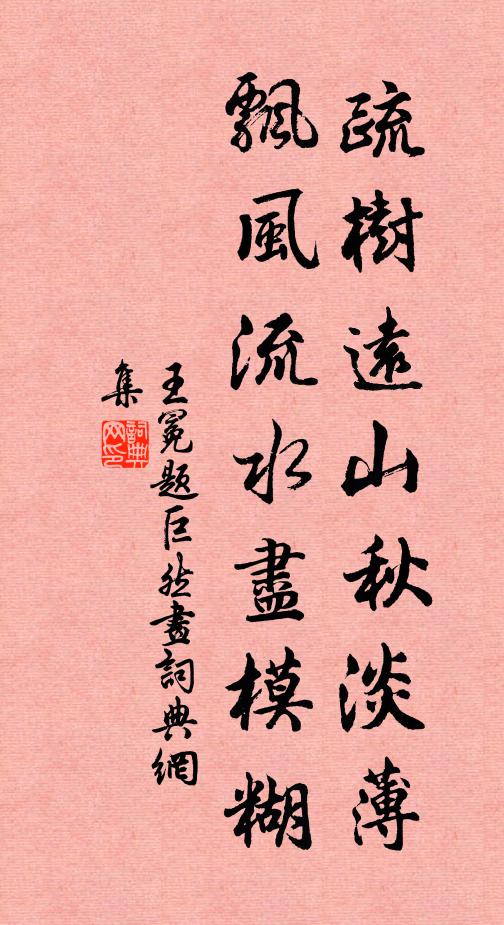 疏樹遠山秋淡薄
飄風流水盡模糊
王冕題巨然畫詞典網
集
詞典網印